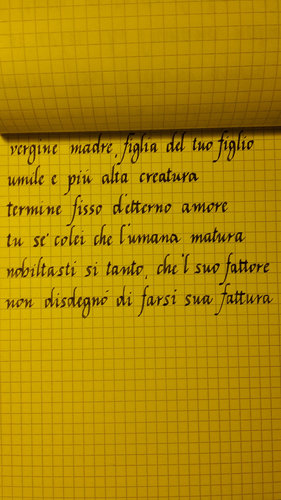 vergine madre, figlia del tuo figlio
umile e più alta creatura
termine fisso d'etterno amore
tu se' colei che l'umana natura
nobiltasti sì tanto, che 'l suo fattore
non disdegnò di farsi sua fattura